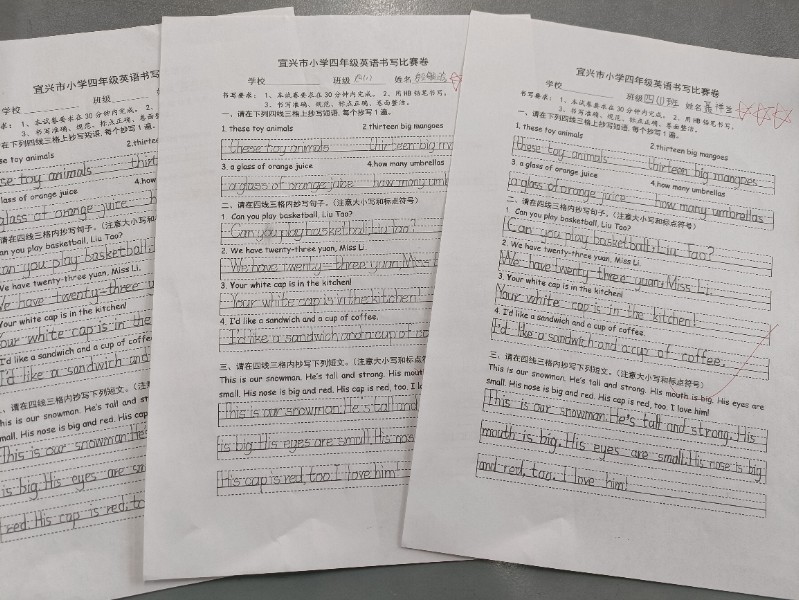 宜兴市小学四年级英语书写
学校 班级
1、本试卷要求在30分钟内完成。 2、
3、书写准确、规范，标点正确，卷面整洁。
在下列四线三格上抄写短语，每个抄写1遍。
toy animals 2.thirt
se toy animals thirt
glass of orange juice 4.how
glass of orange juice
请在四线三格内抄写句子。（注意大小写和标点符
an you play basketball, Liu Tao?
an you play basketball,
We have twenty-three yuan, Miss Li.
We have twenty-three y
Your white cap is in the kitchen!
our white cap is in the
I'd like a sandwich and a cup of coffee
I'd like a sandwich and
请在四线三格内抄写下列短文。（注意
is is our snowman. He's tall and st
mall. His nose is big and red. His cap
This is our snowman.He's
is big.His eyes are sm
red.His cap is red,to
宜兴市小学四年级英语书写比赛卷
学校 班级 四(1) 姓名
书写要求： 1、本试卷要求在30分钟内完成。 2、用HB铅笔书写。
3、书写准确、规范，标点正确，卷面整洁。
一、请在下列四线三格上抄写短语，每个抄写1遍。
1. these toy animals 2.thirteen big mangoes
these toy animals thirteen big man
3. a glass of orange juice 4.how many umbrellas
a glass of orange juice how many um
二、请在四线三格内抄写句子。（注意大小写和标点符号）
1. Can you play basketball, Liu Tao?
Can you play basketball,Liu Tao?
2. We have twenty-three yuan, Miss Li.
We have twenty-three yuan,Miss
3. Your white cap is in the kitchen!
Your white cap is in the kitchen
4. I'd like a sandwich and a cup of coffee.
I'd like a sandwich and a cup of co
三、请在四线三格内抄写下列短文。（注意大小写和标点符号）
This is our snowman. He's tall and strong. His mouth
small. His nose is big and red. His cap is red, too. I lo
This is our snowman.He's tall and
is big.His eyes are small.His nos
His cap is red, too.I love him!
宜兴市小学四年级英语书写比赛卷
学校 班级 四(1)班 姓名
书写要求： 1、本试卷要求在30分钟内完成。 2、用HB铅笔书写。
3、书写准确、规范，标点正确，卷面整洁。
一、请在下列四线三格上抄写短语，每个抄写1遍。
1. these toy animals 2.thirteen big mangoes
these toy animals thirteen big mangoes
3. a glass of orange juice 4.how many umbrellas
a glass of orange juice how many umbrellas
二、请在四线三格内抄写句子。（注意大小写和标点符号）
1. Can you play basketball, Liu Tao?
Can you play basketball,Liu Tao?
2. We have twenty-three yuan, Miss Li.
We have twenty-three yuan,Miss Li.
3. Your white cap is in the kitchen!
Your white cap is in the kitchen!
4. I'd like a sandwich and a cup of coffee.
I'd like a sandwich and a cup of coffee.
三、请在四线三格内抄写下列短文。（注意大小写和标点符号）
This is our snowman. He's tall and strong. His mouth is big. His eyes are
small. His nose is big and red. His cap is red, too. I love him!
This is our snowman.He's tall and strong.His
mouth is big.His eyes are small.His nose is big
and red, too. I love him!